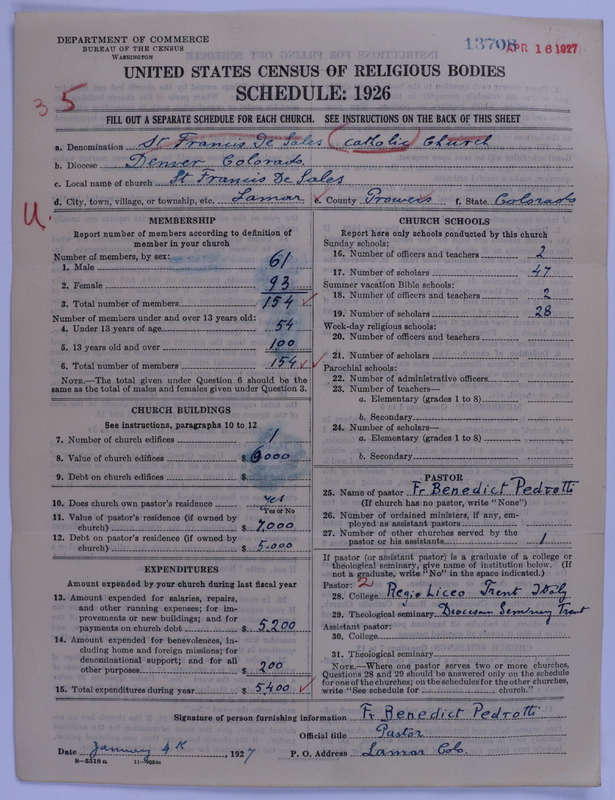 DEPARTMENT OF COMMERCE
BUREAU OF THE CENSUS
WASHINGTON
13708
APR 16 1927
UNITED STATES CENSUS OF RELIGIOUS BODIES
SCHEDULE: 1926
35
FILL OUT A SEPARATE SCHEDULE FOR EACH CHURCH. SEE INSTRUCTIONS ON THE BACK OF THIS SHEET
a. Denomination St Francis De Sales (Catholic) Church
b. Diocese Denver Colorado
c. Local name of church St Francis De Sales
d. City, town, village, or township, etc. Lamar e. County Prowers f. State Colorado
U.
MEMBERSHIP
Report number of members according to definition of
member in your church
Number of members, by sex:
1. Male 61
2. Female 93
3. Total number of members 154
Number of members under and over 13 years old:
4. Under 13 years of age 54
5. 13 years old and over 100
6. Total number of members 154
NOTE.—The total given under Question 6 should be the
same as the total of males and females given under Question 3.
CHURCH BUILDINGS
See instructions, paragraphs 10 to 12
7. Number of church edifices 1
8. Value of church edifices $ 6000
9. Debt on church edifices $
10. Does church own pastor's residence yes
Yes or No
11. Value of pastor's residence (if owned by
church) $ 7.000
12. Debt on pastor's residence (if owned by
church) $ 5.000
EXPENDITURES
Amount expended by your church during last fiscal year
13. Amount expended for salaries, repairs,
and other running expenses; for im-
provements or new buildings; and for
payments on church debt $ 5,200
14. Amount expended for benevolences, in-
cluding home and foreign missions; for
denominational support; and for all
other purposes $ 200
15. Total expenditures during year $ 5400
CHURCH SCHOOLS
Report here only schools conducted by this church
Sunday schools:
16. Number of officers and teachers 2
17. Number of scholars 47
Summer vacation Bible schools:
18. Number of officers and teachers 2
19. Number of scholars 28
Week-day religious schools:
20. Number of officers and teachers
21. Number of scholars
Parochial schools:
22. Number of administrative officers
23. Number of teachers—
a. Elementary (grades 1 to 8)
b. Secondary
24. Number of scholars—
a. Elementary (grades 1 to 8)
b. Secondary
PASTOR
25. Name of pastor Fr Benedict Pedrotti
(If church has no pastor, write "None")
26. Number of ordained ministers, if any, em-
ployed as assistant pastors
27. Number of other churches served by the
pastor or his assistants 1
If pastor (or assistant pastor) is a graduate of a college or
theological seminary, give name of institution below. (If
not a graduate, write "No" in the space indicated.)
Pastor: 2
28. College Regio Liceo Trent Italy
29. Theological seminary Diocesan Seminary Trent
Assistant pastor:
30. College
31. Theological seminary
NOTE.—Where one pastor serves two or more churches,
Questions 28 and 29 should be answered only on the schedule
for one of the churches; on the schedules for the other churches,
write "See schedule for church."
Signature of person furnishing information Fr Benedict Pedrotti
Official title Pastor
Date January 4th, 1927 P. O. Address Lamar Colo.
8—5518 a